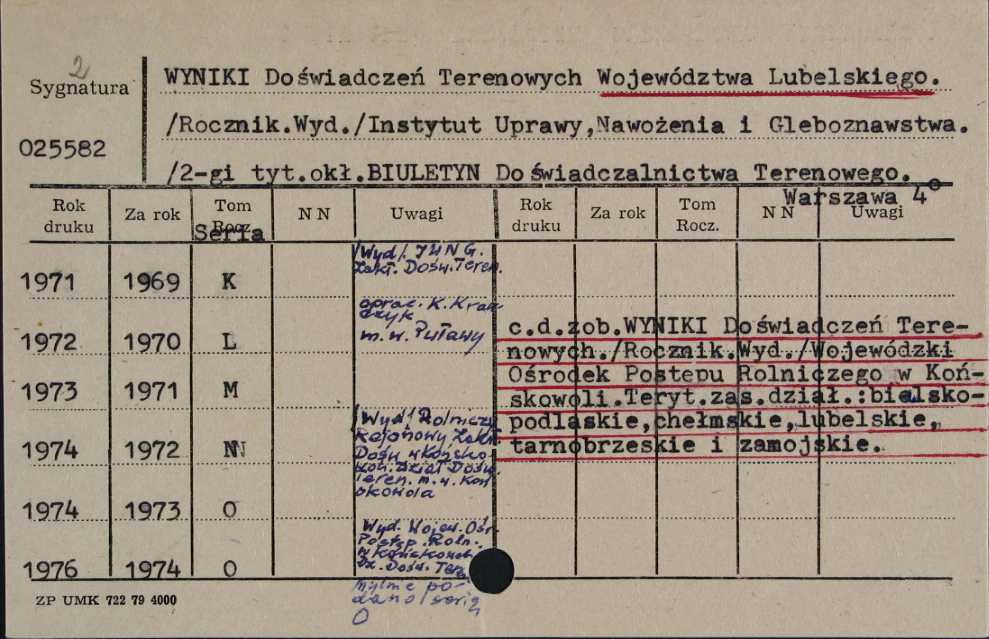 2
Sygnatura
025582
WYNIKI Doświadczeń Terenowych Województwa Lubelskiego.
/Rocznik.Wyd./Instytut Uprawy,Nawożenia i Gleboznawstwa.
/2-gi tyt.okł.BIULETYN Doświadczalnictwa Terenowego.
Warszawa 4°
Rok druku Za rok Tom Rocz. NN Uwagi Rok druku Za rok Tom Rocz. NN Uwagi
Seria
1971 1969 K
/Wyd/. IUNG.
Zakł. Dośw. Teren.
oprac. K. Kraw-
czyk
1972 1970 L
m. w. Puławy
1973 1971 M
/Wyd/ Rolniczy
Rejonowy Zakł.
1974 1972 N
Dośw. w Końsko-
woli. Dział Dośw.
Teren. m. w. Koń
skowola
1974 1973 O
Wyd. Wojew. Ośr.
Postęp. Roln.
w Końskowoli
Dz. Dośw. Teren
1976 1974 O
mylnie po-
dano serię
O
c.d.zob.WYNIKI Doświadczeń Tere-
nowych./Rocznik.Wyd./Wojewódzki
Ośrodek Postępu Rolniczego w Koń-
skowoli.Teryt.zas.dział.:bialsko-
podlaskie,chełmskie,lubelskie,
tarnobrzeskie i zamojskie.
ZP UMK 722 79 4000